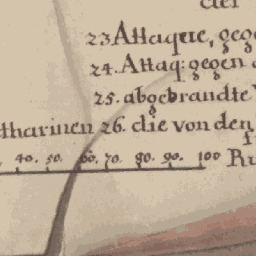 der
23 Attaque, geg
24. Attaq: gegen
25. abgebrandte
tharinen 26. die von den
40. 50. 60. 70. 80. 90. 100 Ru